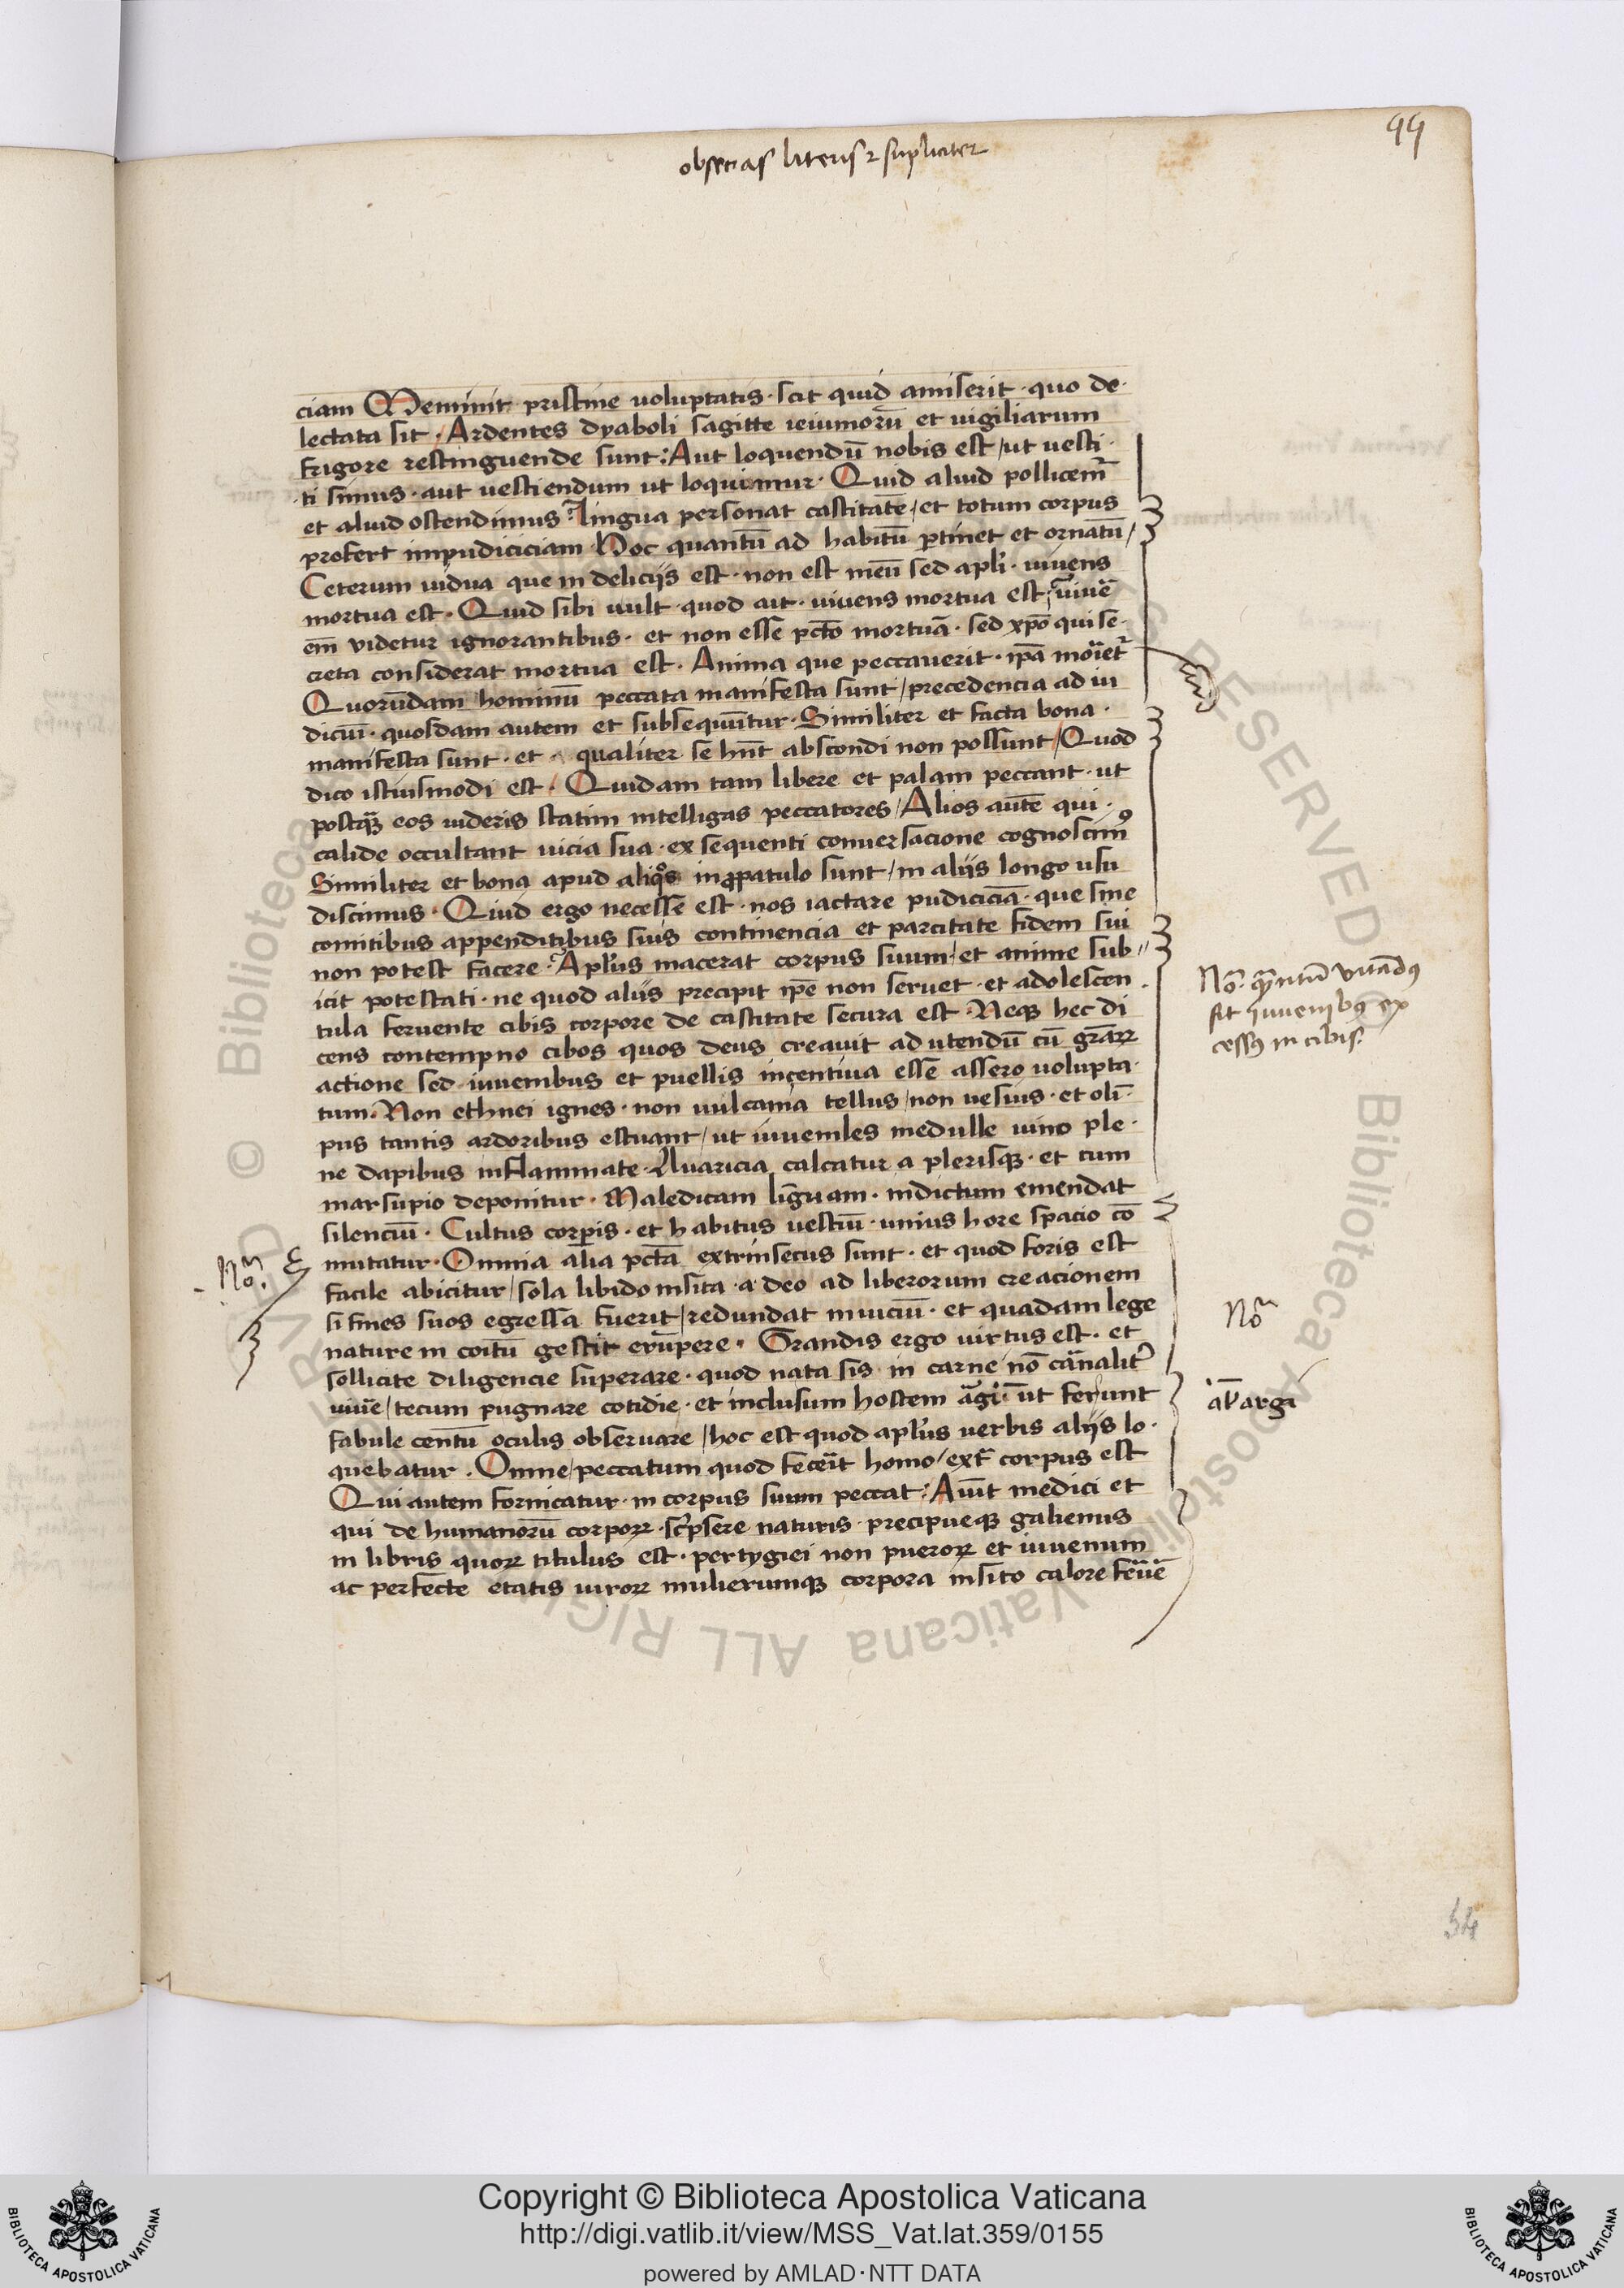 99
obsecras literis et supliciter
ciam Meminit pristine uoluptatis · scit quid amiserit · quo de·
lectata sit · Ardentes dyaboli sagitte ieiuniorū et uigiliarum
frigore restinguende sunt : Aut loquendū nobis est / ut uesti·
ti simus · aut uestiendum ut loquimur · Quid aliud pollicem̄
et aliud ostendimus ? lingua personat castitatē / et totum corpus
profert impudiciciam Hoc quantū ad habitū ꝑtinet et ornatū /
Ceterum uidua que in deliciis est · non est meū sed apl̄i · uiuens
mortua est · Quid sibi uult quod ait · uiuens mortua est ; uiuē
em̄ videtur ignorantibus · et non esse pctō mortuā · sed xp̄o qui se·
creta considerat mortua est · Anima que peccauerit · ip̄a moriet̄
Quorūdam hominū peccata manifesta sunt / precedencia ad iu
diciū · quosdam autem et subsequūtur · Similiter et facta bona ·
manifesta sunt · et qualiter se hn̄t abscondi non possunt / Quod
dico istiusmodi est / Quidam tam libere et palam peccant · ut
postq̄ȝ eos uideris statim intelligas peccatores / Alios autē qui ·
calide occultant uicia sua · ex sequenti conuersacione cognoscimꝰ
Similiter et bona apud aliq̊s in ꝓpatulo sunt / in aliis longo usu
discimus · Quid ergo necesse est · nos iactare pudiciciā · que sine
comitibus appenditibus suis continencia et parcitate fidem sui
non potest facere ? Apl̄us macerat corpus suum / et anime sub//
icit potestati · ne quod aliis precipit ip̄e non seruet · et adolescen·
tula feruente cibis corpore de castitate secura est · Neqȝ hec di
cens contempno cibos quos deus creauit ad utendū cū gr̄aꝝ
actione sed iuuenibus et puellis incentiua esse assero uolupta·
tum · Non ethnei ignes · non uulcania tellus / non uesius · et olī·
pus tantis ardoribus estuant / ut iuueniles medulle uino ple·
ne dapibus inflammate · Auaricia calcatur a plerisqȝ · et cum
marsupio deponitur · Maledicam linguam · indictum emendat
silenciū · Cultus corꝑis · et habitus uestiū · unius hore spacio cō
mutatur · Omnia alia pctā extrinsecus sunt · et quod foris est
facile abicitur / sola libido insita a deo ad liberorum creacionem
si fines suos egressa fuerit / redundat in uiciū · et quadam lege
nature in coitū gestit erūpere · Grandis ergo uirtus est · et
sollicite diligencie superare · quod nata sis in carne nō carnalit̄
uiuē / tecum pugnare cotidie · et inclusum hostem argi · ut ferunt
fabule centū oculis obseruare / hoc est quod apl̄us uerbis aliis lo·
quebatur · Omne / peccatum quod fecerit homo / ext̄ corpus est
Qui autem fornicatur · in corpus suum peccat : Aiūt medici et
qui de humanorū corpoꝝ scripsere naturis precipueqȝ galienus
in libris quoꝝ titulus est · pertygiei non pueroꝝ et iuuenum
ac perfecte etatis uiroꝝ mulierumqȝ corpora insito calore feruē
Noᵃ quantū vitādꝰ
sit iuuenibꝰ ex
cessꝰ in cibis.
Noᵃ
Noᵃ
al̄ argi
54
Copyright © Biblioteca Apostolica Vaticana
http://digi.vatlib.it/view/MSS_Vat.lat.359/0155
powered by AMLAD·NTT DATA
BIBLIOTECA APOSTOLICA VATICANA
BIBLIOTECA APOSTOLICA VATICANA
© Biblioteca Apostolica Vaticana ALL RIGHTS RESERVED